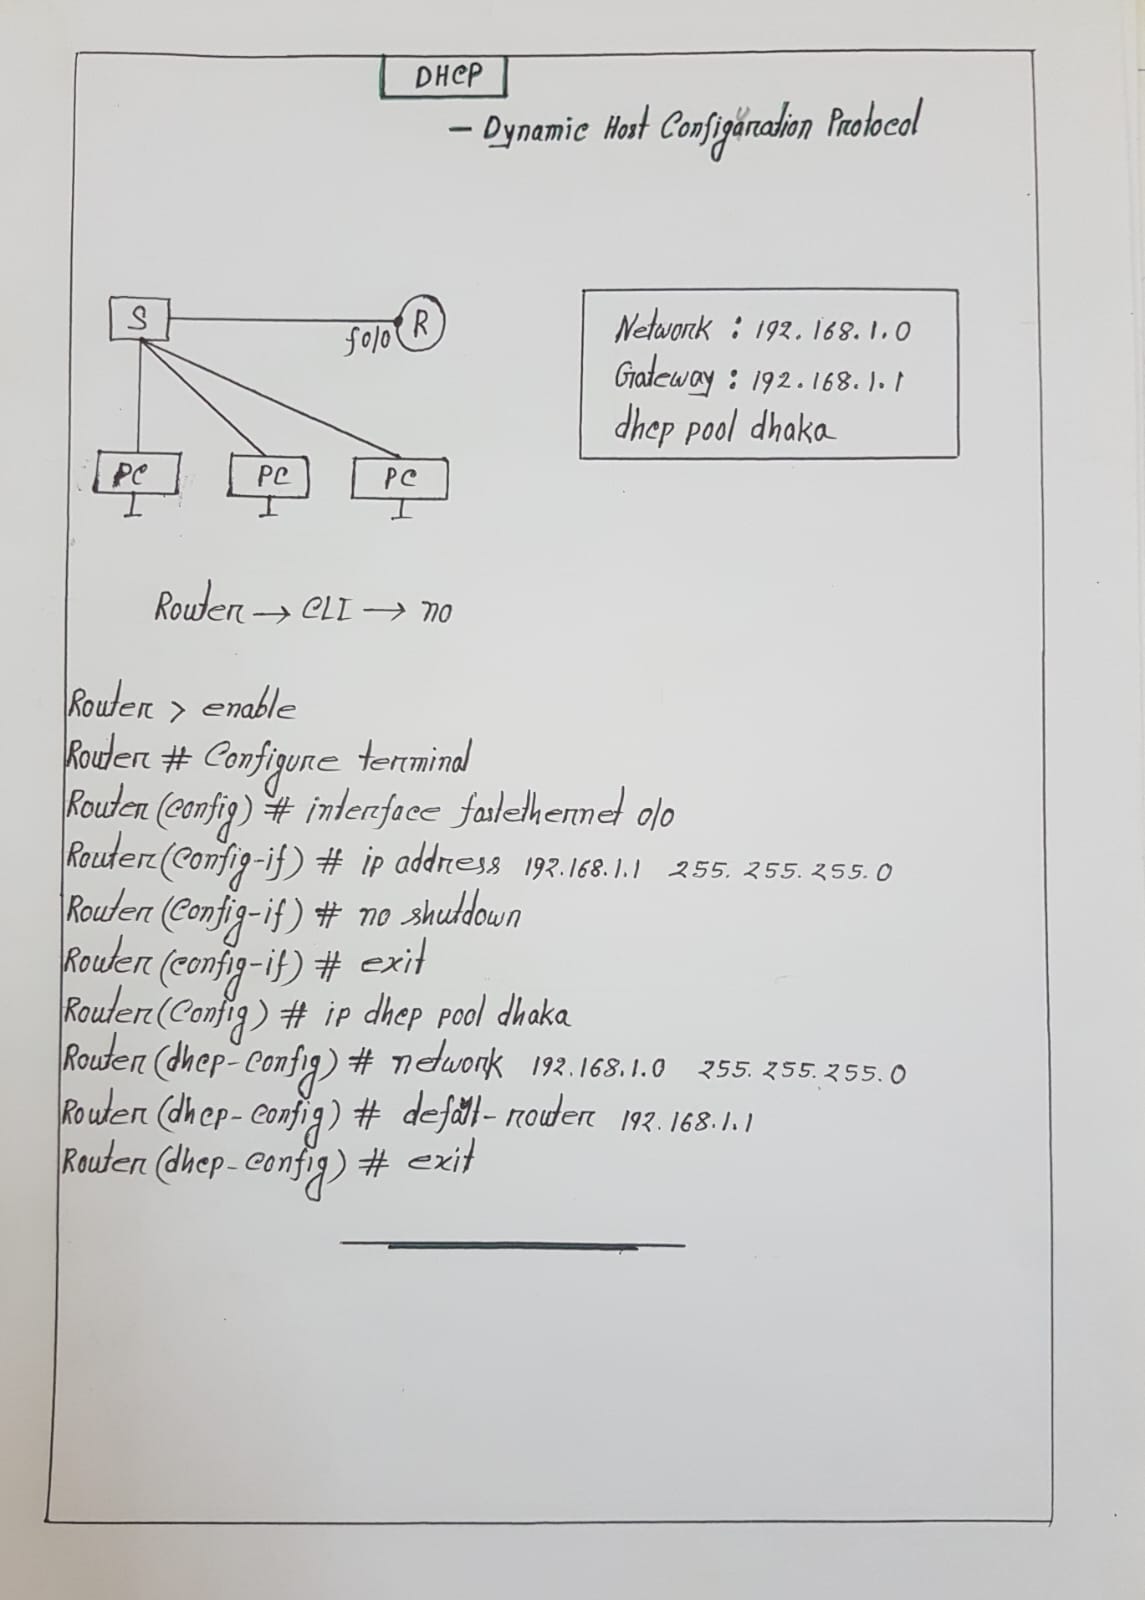 DHCP
- Dynamic Host Configuration Protocol
S
R
f0/0
Network : 192.168.1.0
Gateway : 192.168.1.1
dhcp pool dhaka
PC PC PC
Router → CLI → no
Router > enable
Router # Configure terminal
Router (config) # interface fastethernet 0/0
Router (Config-if) # ip address 192.168.1.1 255.255.255.0
Router (Config-if) # no shutdown
Router (config-if) # exit
Router (Config) # ip dhcp pool dhaka
Router (dhcp-config) # network 192.168.1.0 255.255.255.0
Router (dhcp-config) # defalt-router 192.168.1.1
Router (dhcp-config) # exit